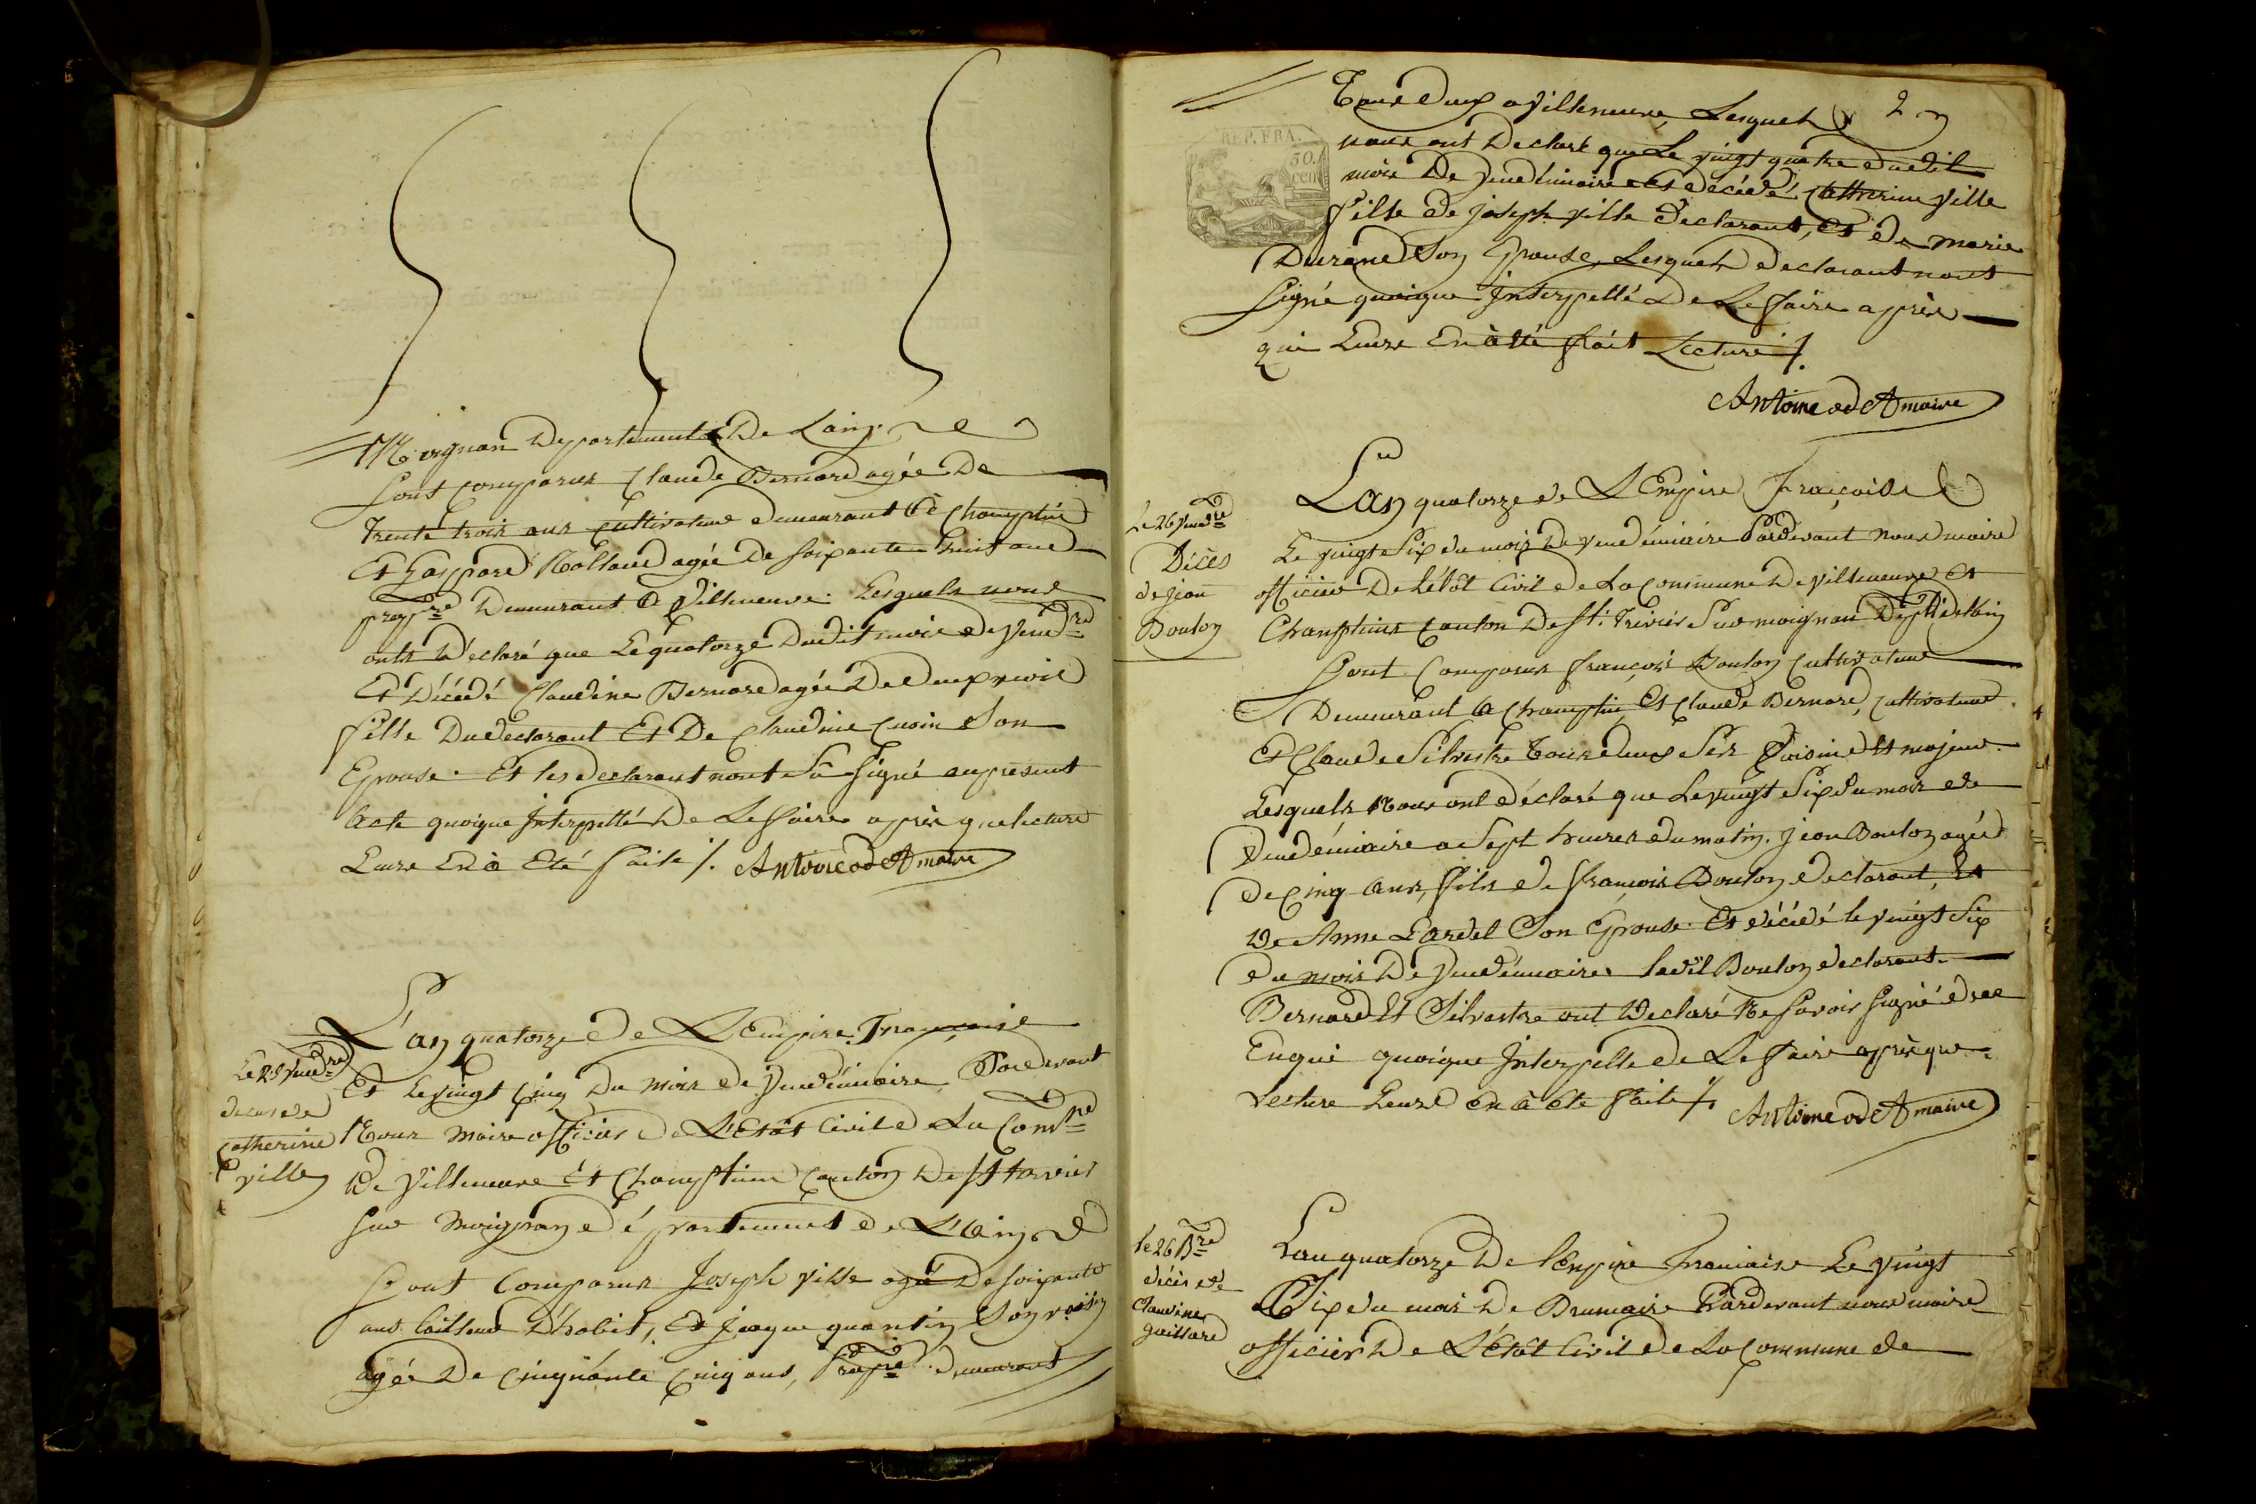 Moignan Departement De Lain
Sont Comparus Claude Bernard agée De
Trente trois ans Cultivateur demeurant à Champtin
Et Gaspard Rolland agée De soixante huit ans
propre Demeurant à Villeneuve. Lesquels nous
onts Déclaré que Le quatorze Dudit mois de Vendre
Et Décédé Claudine Bernard agée De Deux mois
fille Du declarant Et De Claudine Son
Epouse. Et les declarant nont Sû Signé au present
acte quoique Interpellé De Le faire après que lecture
Leurs En à Eté faite /. Antoine maire
L'an quatorze De L'Empire Française
Le 25 Vendre
Et Le vingt Cinq Du mois de Vendémiaire Pardevant
deces de
catherine
ville
Nous Maire officier De L'Etat Civil De La Comne
De Villeneuve Et Champtein Canton De St trivier
Sur Moignan département de L'Ain
Sont Comparus Joseph ville agé De soixante
ans tailleur D'habit, Et Jacque quantin Son voisin
agée De Cinquante Cinq ans, propre demeurant
Tous deux a Villeneuve, Lesquels 2
nous ont Déclaré que Le vingt quatre dudit
REP. FRA.
50.
cent
mois De Vendémiaire est décédé Catherine ville
fille de joseph ville declarant, Et de marie
Durand Son Epouse, Lesquels declarant nont
Signé quoique Interpellé De Le faire après
qui Leurs En à été fait Lecture /.
Antoine maire
Lan quatorze de L'Empire Française
Le 26 Vendre
Décès
de jean
Bouton
Le vingt Six du mois De vendémiaire Pardevant nous maire
officier De Létat Civil de La Commune De Villeneuve Et
Champtein Canton De St. Trivier Sur moignan Dept De Lain
Sont Comparus françois Bouton Cultivateur
Demeurant à Champtin Et Claude Bernard, Cultivateur
Et Claude Silvestre tous deux Ses Voisin Et majeur.
Lesquels Nous ont déclaré que Le vingt Six du mois de
Vendémiaire a Sept heures du matin. jean Bouton agée
De Cinq ans, fils de françois Bouton declarant, Et
De Anne Lardet Son Epouse. Et décédé le vingt Six
du mois De Vendémiaire ledit Bouton declarant.
Bernard Et Silvestre ont Declaré Ne Savoir Signé de ce
Enqui quoique Interpelle de Le faire après que
Lecture Leurs en à été faite /. Antoine maire
le 26 Bre
décès de
Claudine
gaillard
Lan quatorze De l'Empire Francaise Le vingt
Six du mois De Brumaire Pardevant nous maire
officier De L'Etat Civil De La Commune de